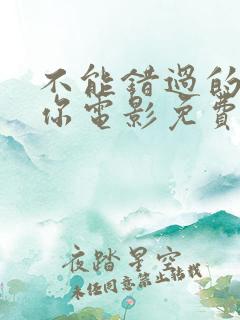 不能错过的
你电影免费
夜踏星空
未经同意禁止转载